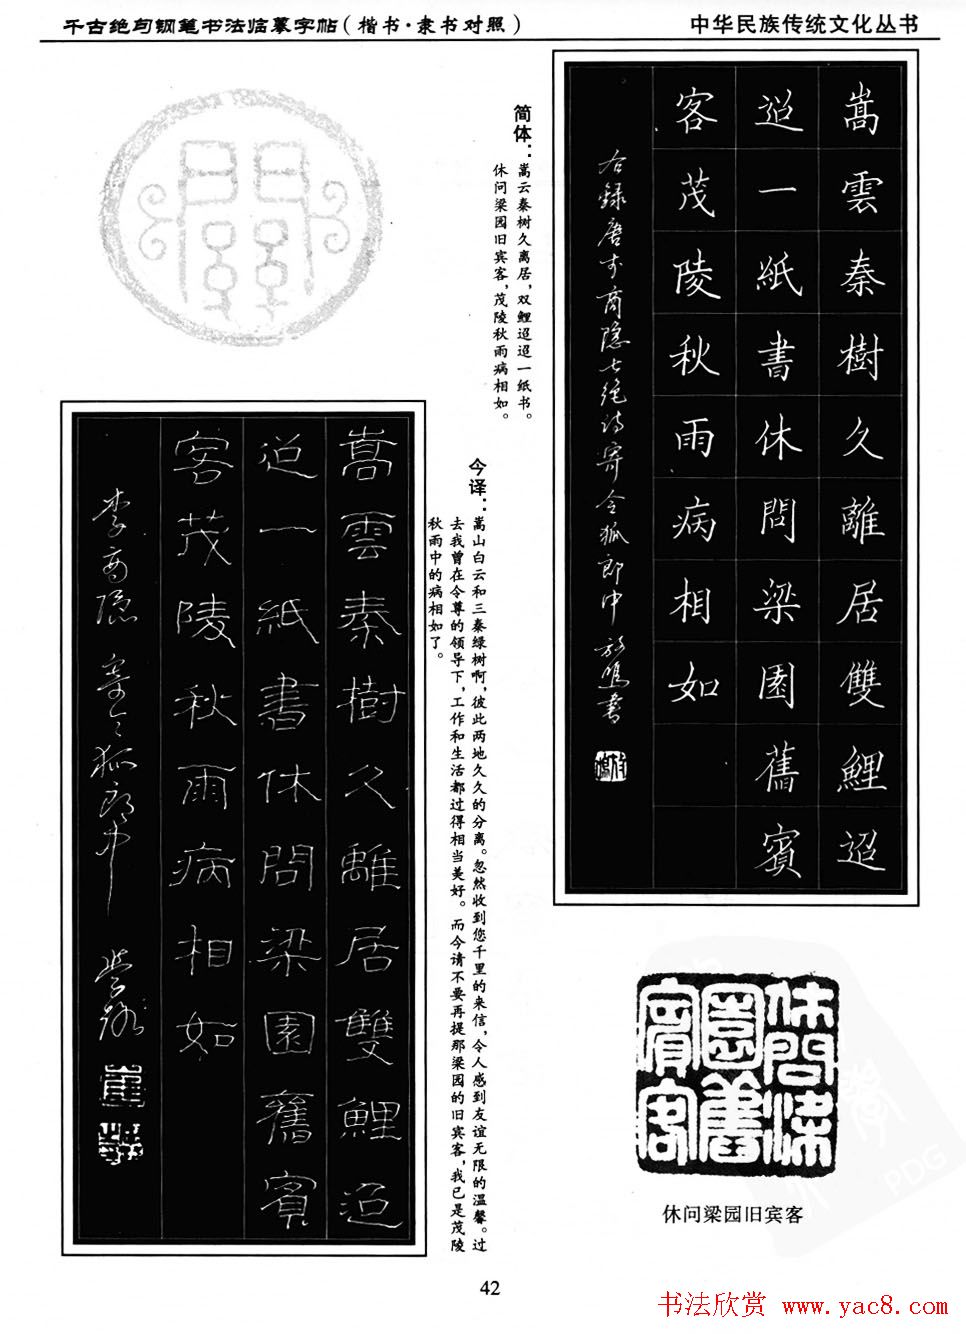 千古绝句钢笔书法临摹字帖(楷书·隶书对照)
中华民族传统文化丛书
嵩雲秦樹久離居雙鯉迢
迢一紙書休問梁園舊賓
客茂陵秋雨病相如
右錄唐李商隐七绝诗寄令狐郎中
简体：嵩云秦树久离居，双鲤迢迢一纸书。
休问梁园旧宾客，茂陵秋雨病相如。
今译：嵩山白云和三秦绿树啊，彼此两地久久的分离。忽然收到您千里的来信，令人感到友谊无限的温馨。过
去我曾在令尊的领导下，工作和生活都过得相当美好。而今请不要再提那梁园的旧宾客，我已是茂陵
秋雨中的病相如了。
嵩雲秦樹久離居雙鯉迢
迢一紙書休問梁園舊賓
客茂陵秋雨病相如
李商隐 寄令狐郎中
休问梁园旧宾客
42
书法欣赏 www.yac8.com
PDG